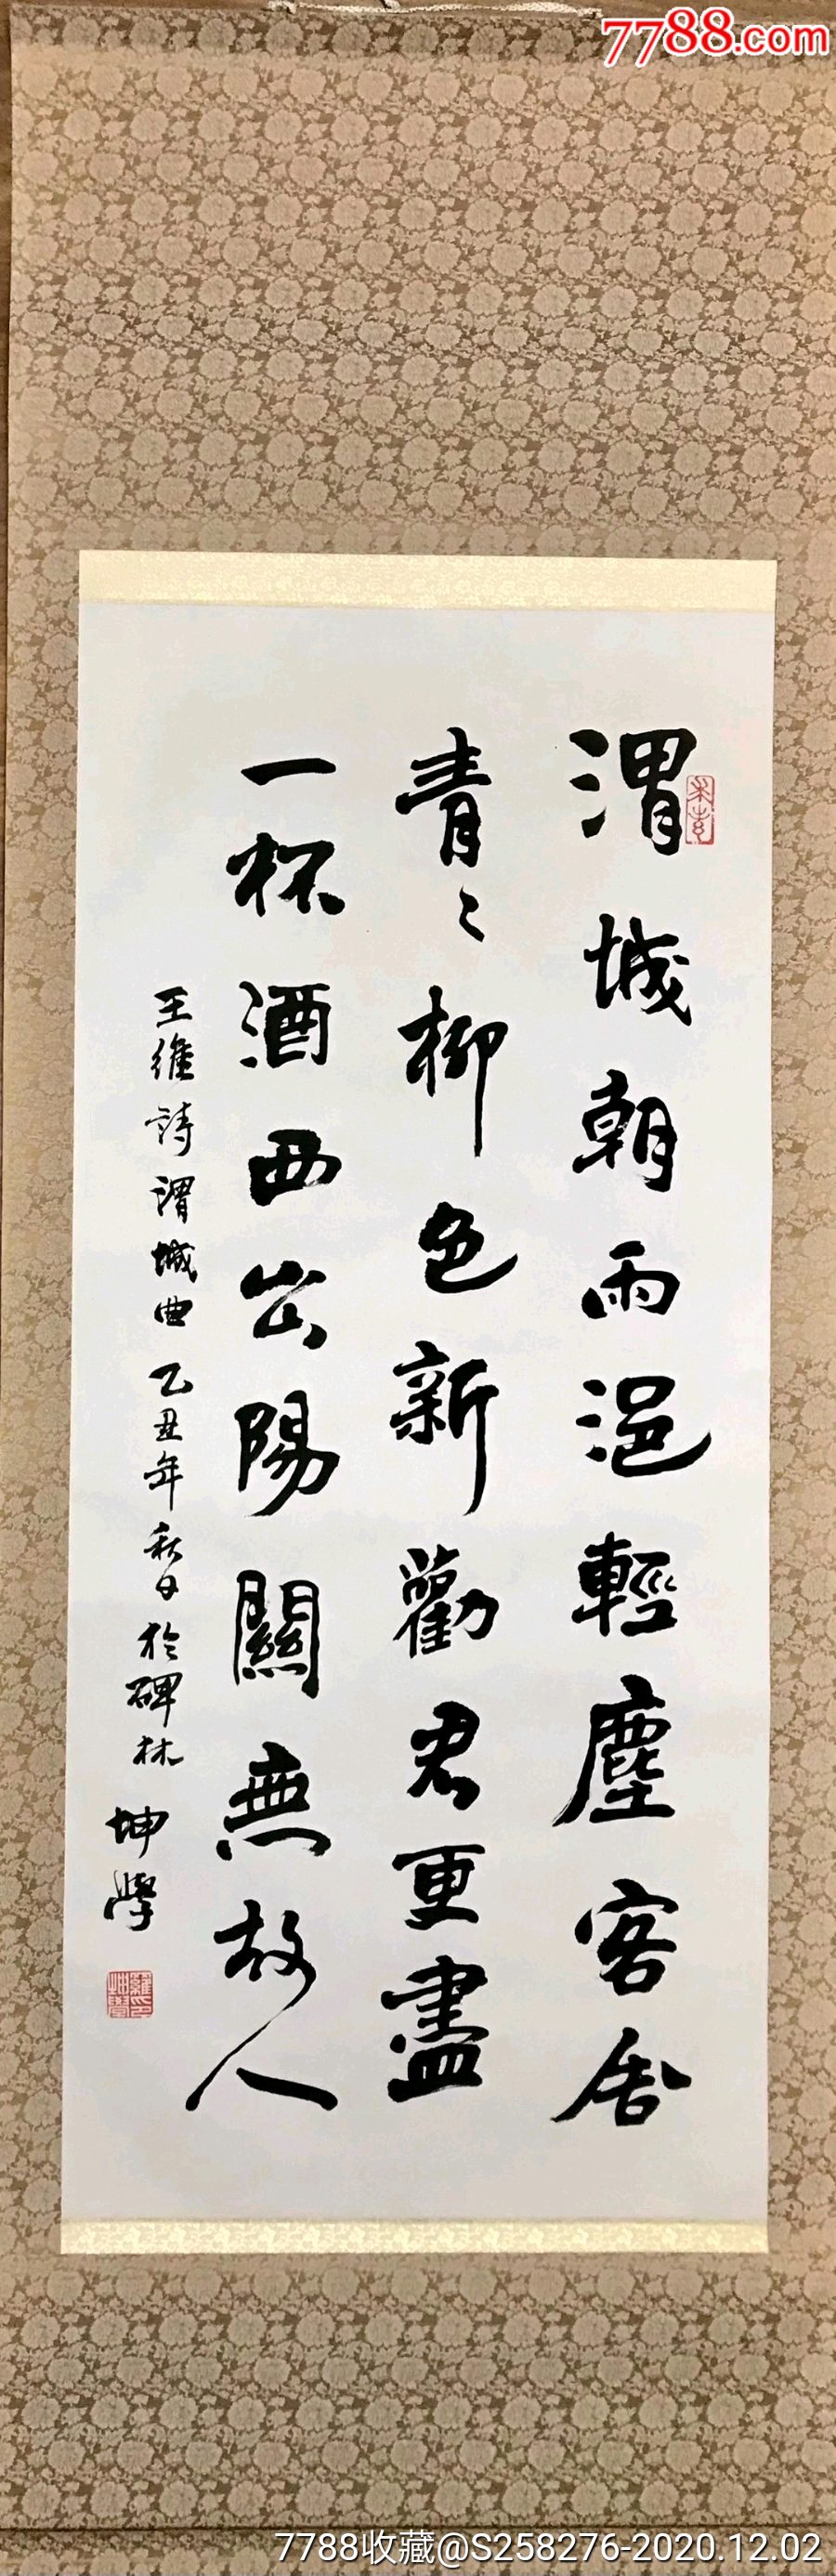 7788.com
渭城朝雨浥輕塵客舍
青〻柳色新勸君更盡
一杯酒西出陽關無故人
王維詩渭城曲乙丑年秋日於碑林
坤學
羅坤學印
7788收藏@S258276-2020.12.02